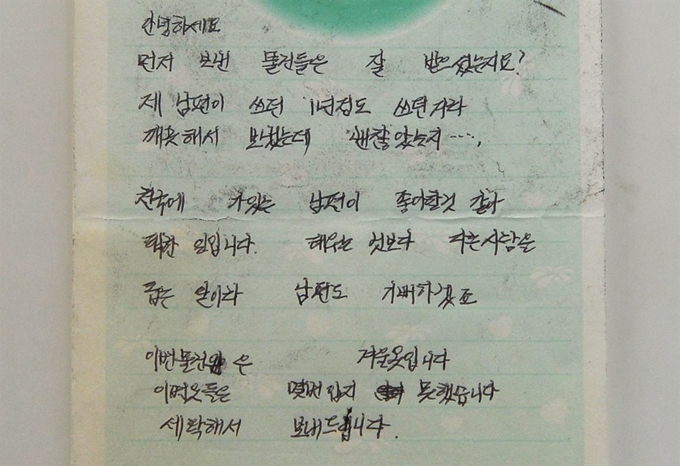 안녕하세요
먼저 보낸 물건들은 잘 받으셨는지요?
제 남편이 쓰던 1년정도 쓰던거라
깨끗해서 보냈는데 괜찮았는지....,
천국에 가있는 남편이 좋아할것 같아
택한 일입니다. 태우는 것보다 다른사람을
돕는 일이라 남편도 기뻐하겠죠
이번물건 은 겨울옷입니다
이번옷들은 몇번입지 못했습니다
세탁해서 보내드립니다.